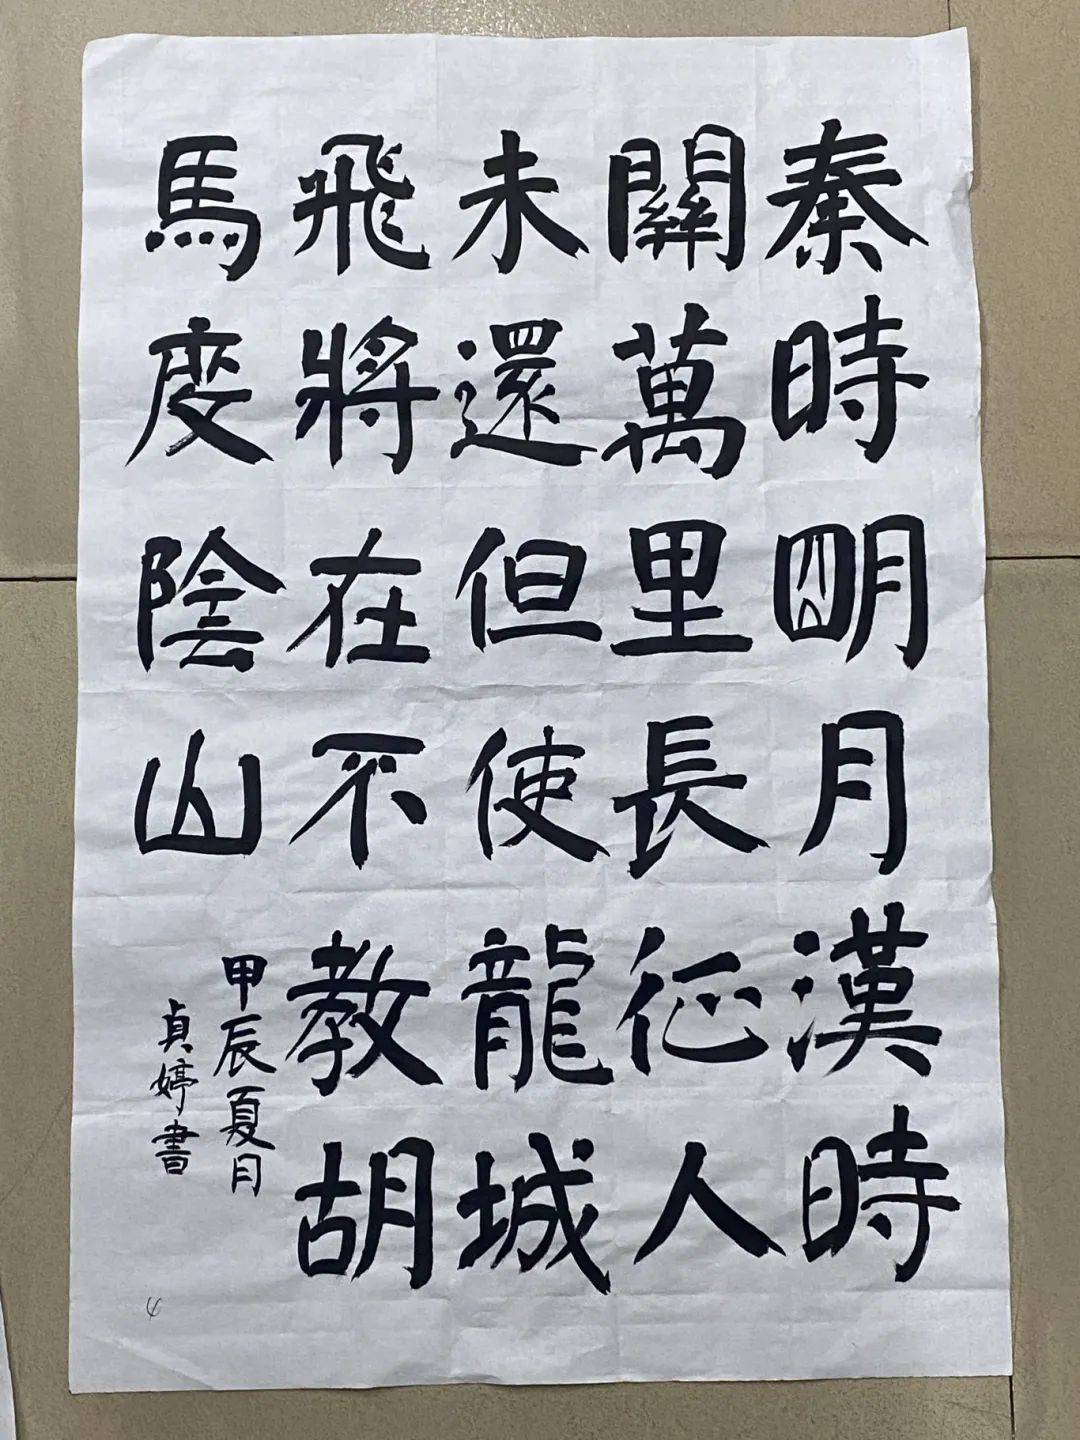 秦時明月漢時
關萬里長征人
未還但使龍城
飛將在不教胡
馬度陰山
甲辰夏月
貞婷書